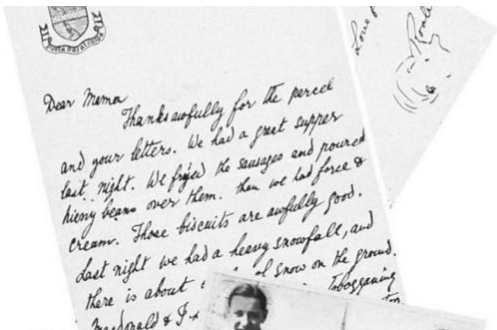 Dear Mama
Thanks awfully for the parcel
and your letters. We had a great supper
last night. We fried the sausages and poured
hieny beans over them. then we had force &
cream. Those biscuits are awfully good.
Last night we had a heavy snowfall, and
there is about of snow on the ground.
Macdonald & I tobogganing
Love